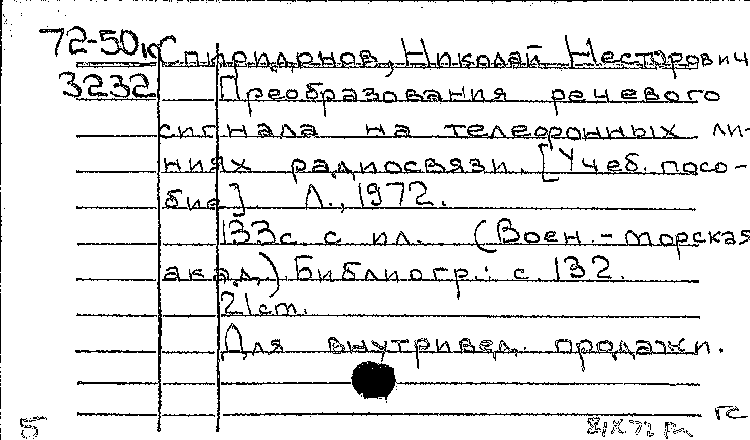 72-50ю Спиридонов, Николай Нестерович
3232 Преобразования речевого
сигнала на телефонных ли-
ниях радиосвязи. [Учеб. посо-
бие]. Л., 1972.
133с. с ил. (Воен.-морская
акад.) Библиогр.: с. 132.
21см.
Для внутривед. продажи.
гс
5